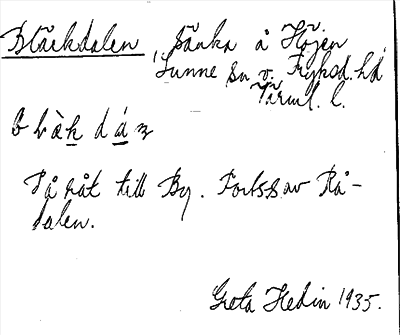 Bläckdalen, sänka å Höjen
Sunne sn v. Fryksd. hd
Värml. l.
På råt till By. Forts av Rå-
dalen.
Greta Hedin 1935.